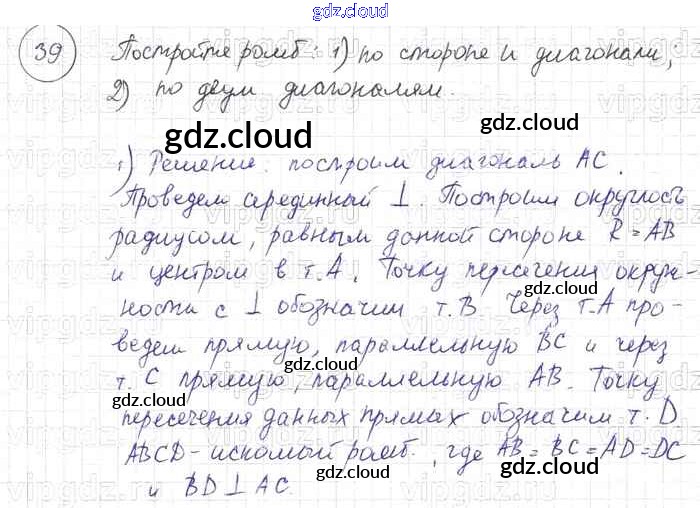 gdz.cloud
39 Постройте ромб: 1) по стороне и диагонали,
2) по двум диагоналям.
gdz.cloud
gdz.cloud
1) Решение: построим диагональ AC.
Проведем серединный ⊥. Построим окружность
gdz.cloud
радиусом, равным данной стороне R = AB
и центром в т. A. Точку пересечения окруж-
gdz.cloud
ности с ⊥ обозначим т. B. Через т. A про-
ведем прямую, параллельную BC и через
т. C прямую, параллельную AB. Точку
gdz.cloud
gdz.cloud
пересечения данных прямых обозначим т. D
ABCD - искомый ромб, где AB = BC = AD = DC
gdz.cloud
и BD ⊥ AC.
gdz.cloud